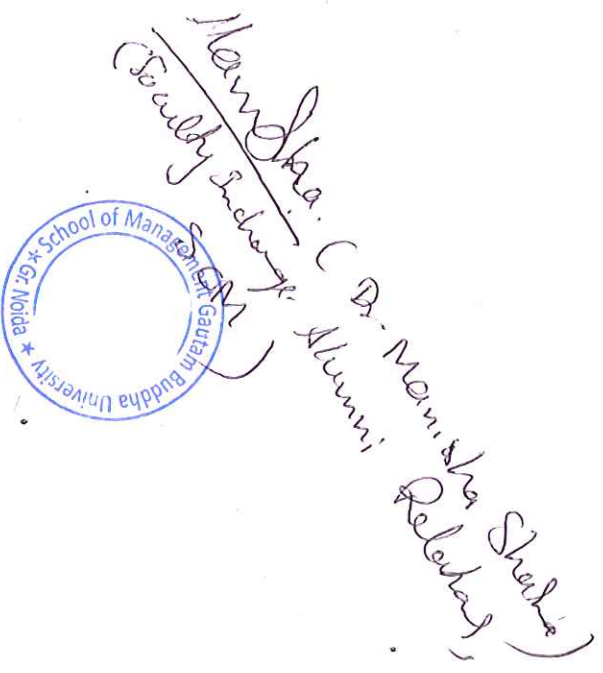 Manisha. (Dr. Manisha Sharma)
(Faculty Incharge Alumni Relations,
SOM)
School of Management Gautam Buddha University ★ Gr. Noida ★